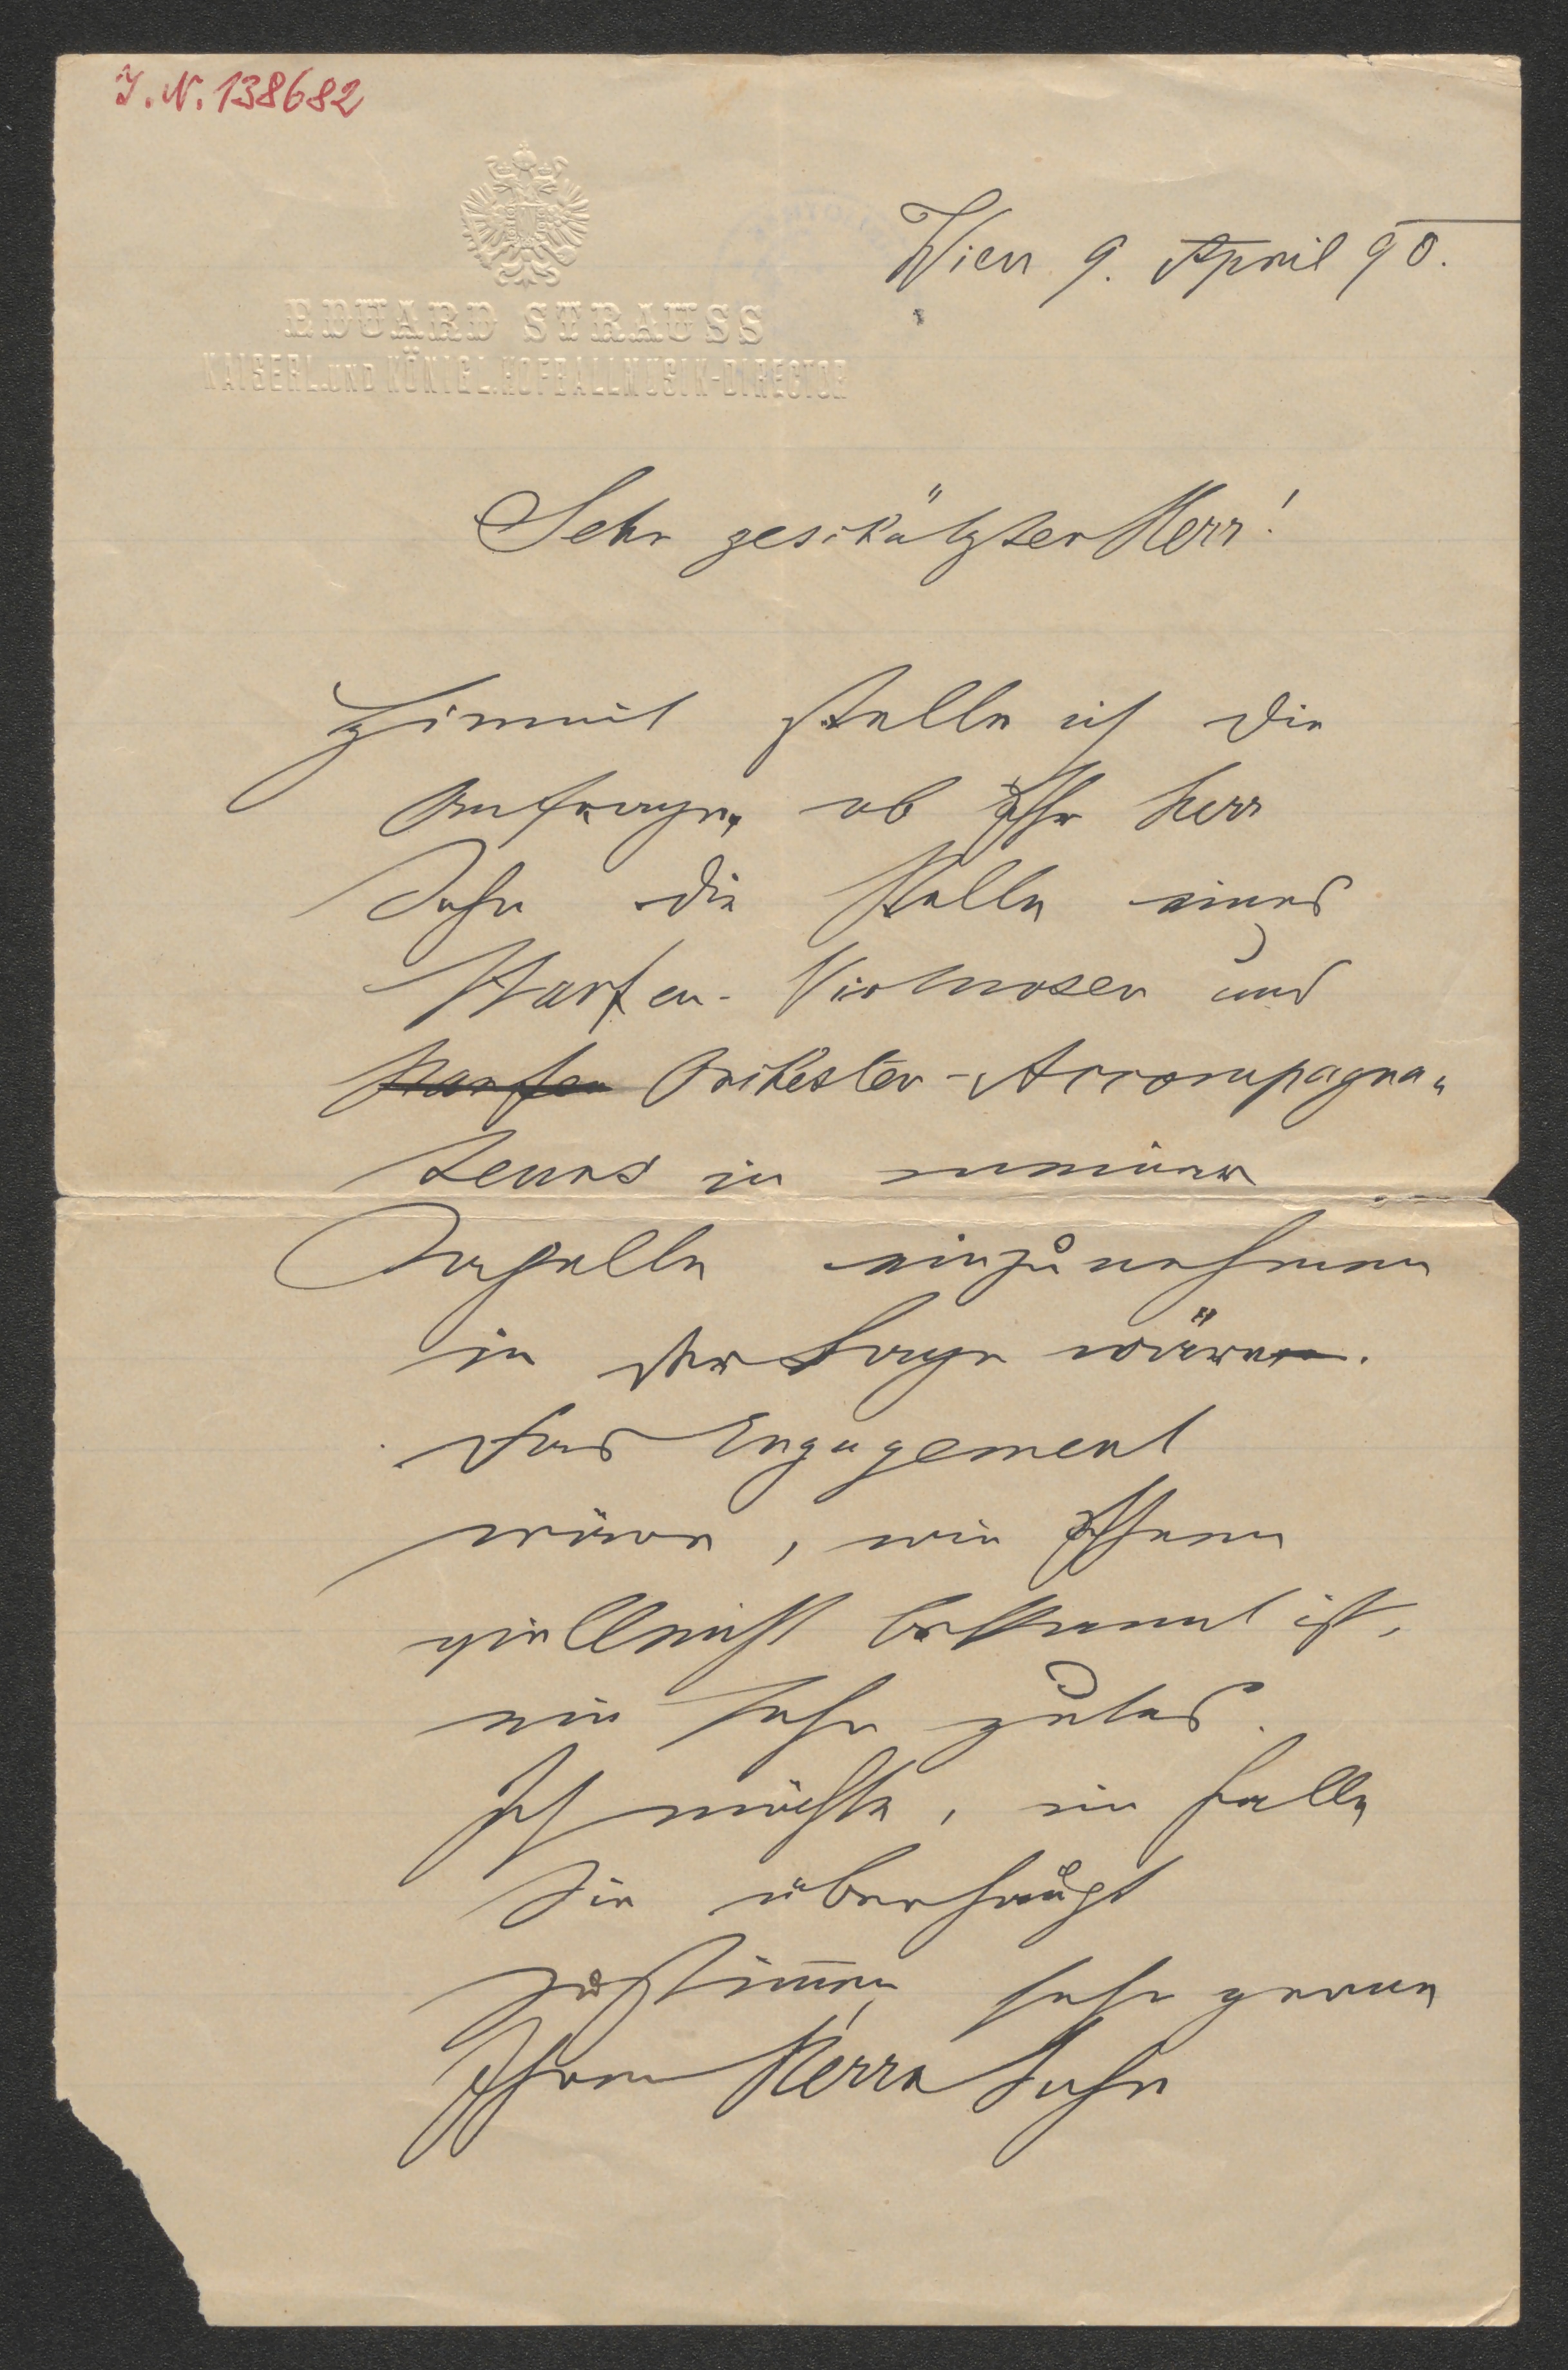 I. N. 138682
EDUARD STRAUSS
KAISERL. UND KÖNIGL. HOFBALLMUSIK-DIRECTOR
Wien 9. April 90.
Sehr geschätzter Herr!
Hiemit stelle ich die
Anfrage, ob Ihr Herr
Sohn die Stelle eines
Harfen-Virtuosen und
Harfen Orchester-Accompagna-
teurs in meiner
Capelle einzunehmen
in der Lage wäre.
Das Engagement
wäre, wie Ihnen
vielleicht bekannt ist,
ein sehr gutes.
Ich möchte, im Falle
Sie überhaupt
zustimmen, sehr gerne
Ihren Herrn Sohn